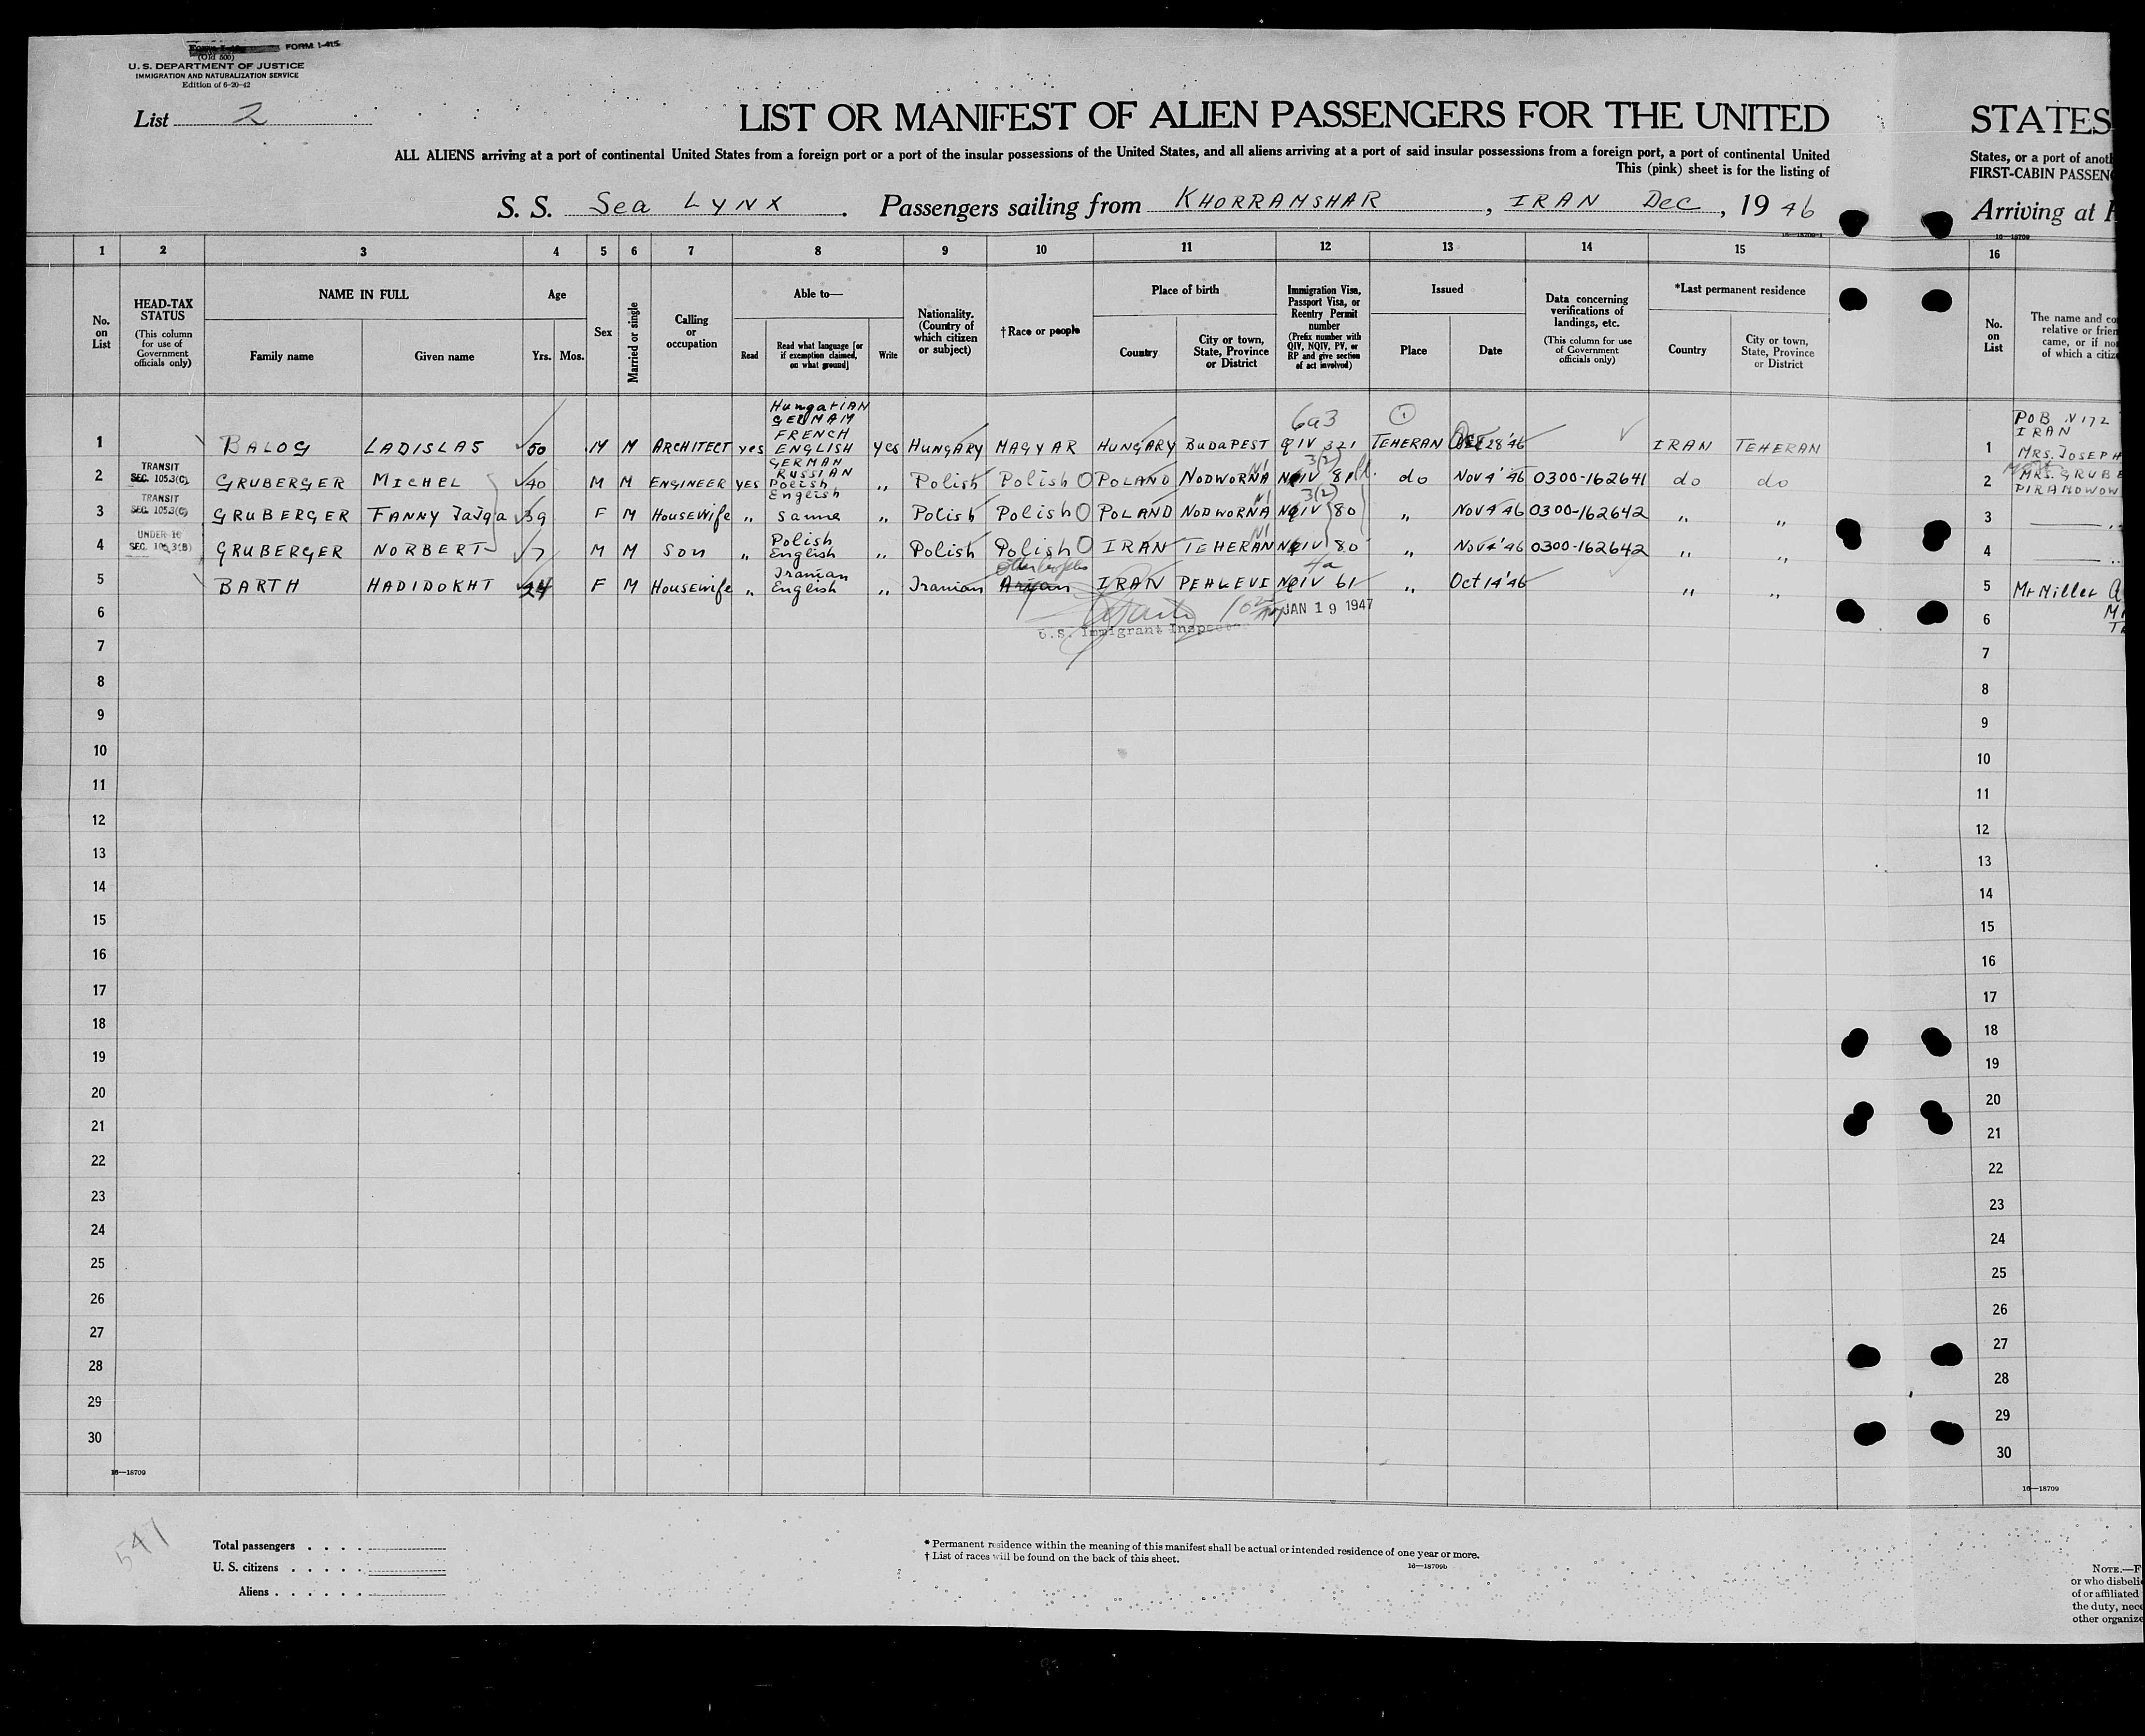 FORM I-415
(Old 500)
U. S. DEPARTMENT OF JUSTICE
IMMIGRATION AND NATURALIZATION SERVICE
Edition of 6-20-42
List 2
LIST OR MANIFEST OF ALIEN PASSENGERS FOR THE UNITED
STATES
ALL ALIENS arriving at a port of continental United States from a foreign port or a port of the insular possessions of the United States, and all aliens arriving at a port of said insular possessions from a foreign port, a port of continental United
States, or a port of anoth
This (pink) sheet is for the listing of
FIRST-CABIN PASSEN
S. S. Sea LYNX . Passengers sailing from KHORRAMSHAR , IRAN Dec , 19 46
Arriving at
16—18709-1
16—18709
1 2 3 4 5 6 7 8 9 10 11 12 13 14 15 16
No. on List
HEAD-TAX STATUS
(This column for use of Government officials only)
NAME IN FULL
Family name
Given name
Age
Yrs.
Mos.
Sex
Married or single
Calling or occupation
Able to—
Read
Read what language [or if exemption claimed, on what ground]
Write
Nationality. (Country of which citizen or subject)
†Race or people
Place of birth
Country
City or town, State, Province or District
Immigration Visa, Passport Visa, or Reentry Permit number
(Prefix number with QIV, NQIV, PV, or RP and give section of act involved)
Issued
Place
Date
Data concerning verifications of landings, etc.
(This column for use of Government officials only)
*Last permanent residence
Country
City or town, State, Province or District
No. on List
The name and co
relative or frien
came, or if no
of which a citize
1 BALOG LADISLAS 50 M M ARCHITECT yes Hungarian GERMAN FRENCH ENGLISH yes HUNGARY MAGYAR HUNGARY BUDAPEST 6a3 QIV 321 TEHERAN Oct 28'46 IRAN TEHERAN
1 POB N 172 IRAN MRS. JOSEPH
2 TRANSIT SEC. 105.3(C) GRUBERGER MICHEL 40 M M ENGINEER yes GERMAN RUSSIAN Polish English ,, Polish Polish POLAND NODWORNA 3(2) NQIV 81 do Nov 4'46 0300-162641 do do
2 MRS. GRUBE PIRAMOWOW
3 TRANSIT SEC. 105.3(C) GRUBERGER FANNY Jajga 39 F M Housewife ,, same ,, Polish Polish POLAND NODWORNA 3(2) NQIV 80 ,, Nov 4'46 0300-162642 ,, ,,
3
4 UNDER 16 SEC. 105.3(B) GRUBERGER NORBERT 7 M M Son ,, Polish English ,, Polish Polish IRAN TEHERAN NQIV 80 ,, Nov 4'46 0300-162642 ,, ,,
4
5 BARTH HADIDOKHT 24 F M Housewife ,, Iranian English ,, Iranian Aryan IRAN PEHLEVI 4a NQIV 61 ,, Oct 14'46 ,, ,,
5 Mr Miller
6 JAN 19 1947
U.S. Immigrant Inspector
6
7 7
8 8
9 9
10 10
11 11
12 12
13 13
14 14
15 15
16 16
17 17
18 18
19 19
20 20
21 21
22 22
23 23
24 24
25 25
26 26
27 27
28 28
29 29
30 30
16—18709
16—18709
547
Total passengers
U. S. citizens
Aliens
* Permanent residence within the meaning of this manifest shall be actual or intended residence of one year or more.
† List of races will be found on the back of this sheet.
16—18709b
NOTE.—F
or who disbelie
of or affiliated
the duty, nece
other organize